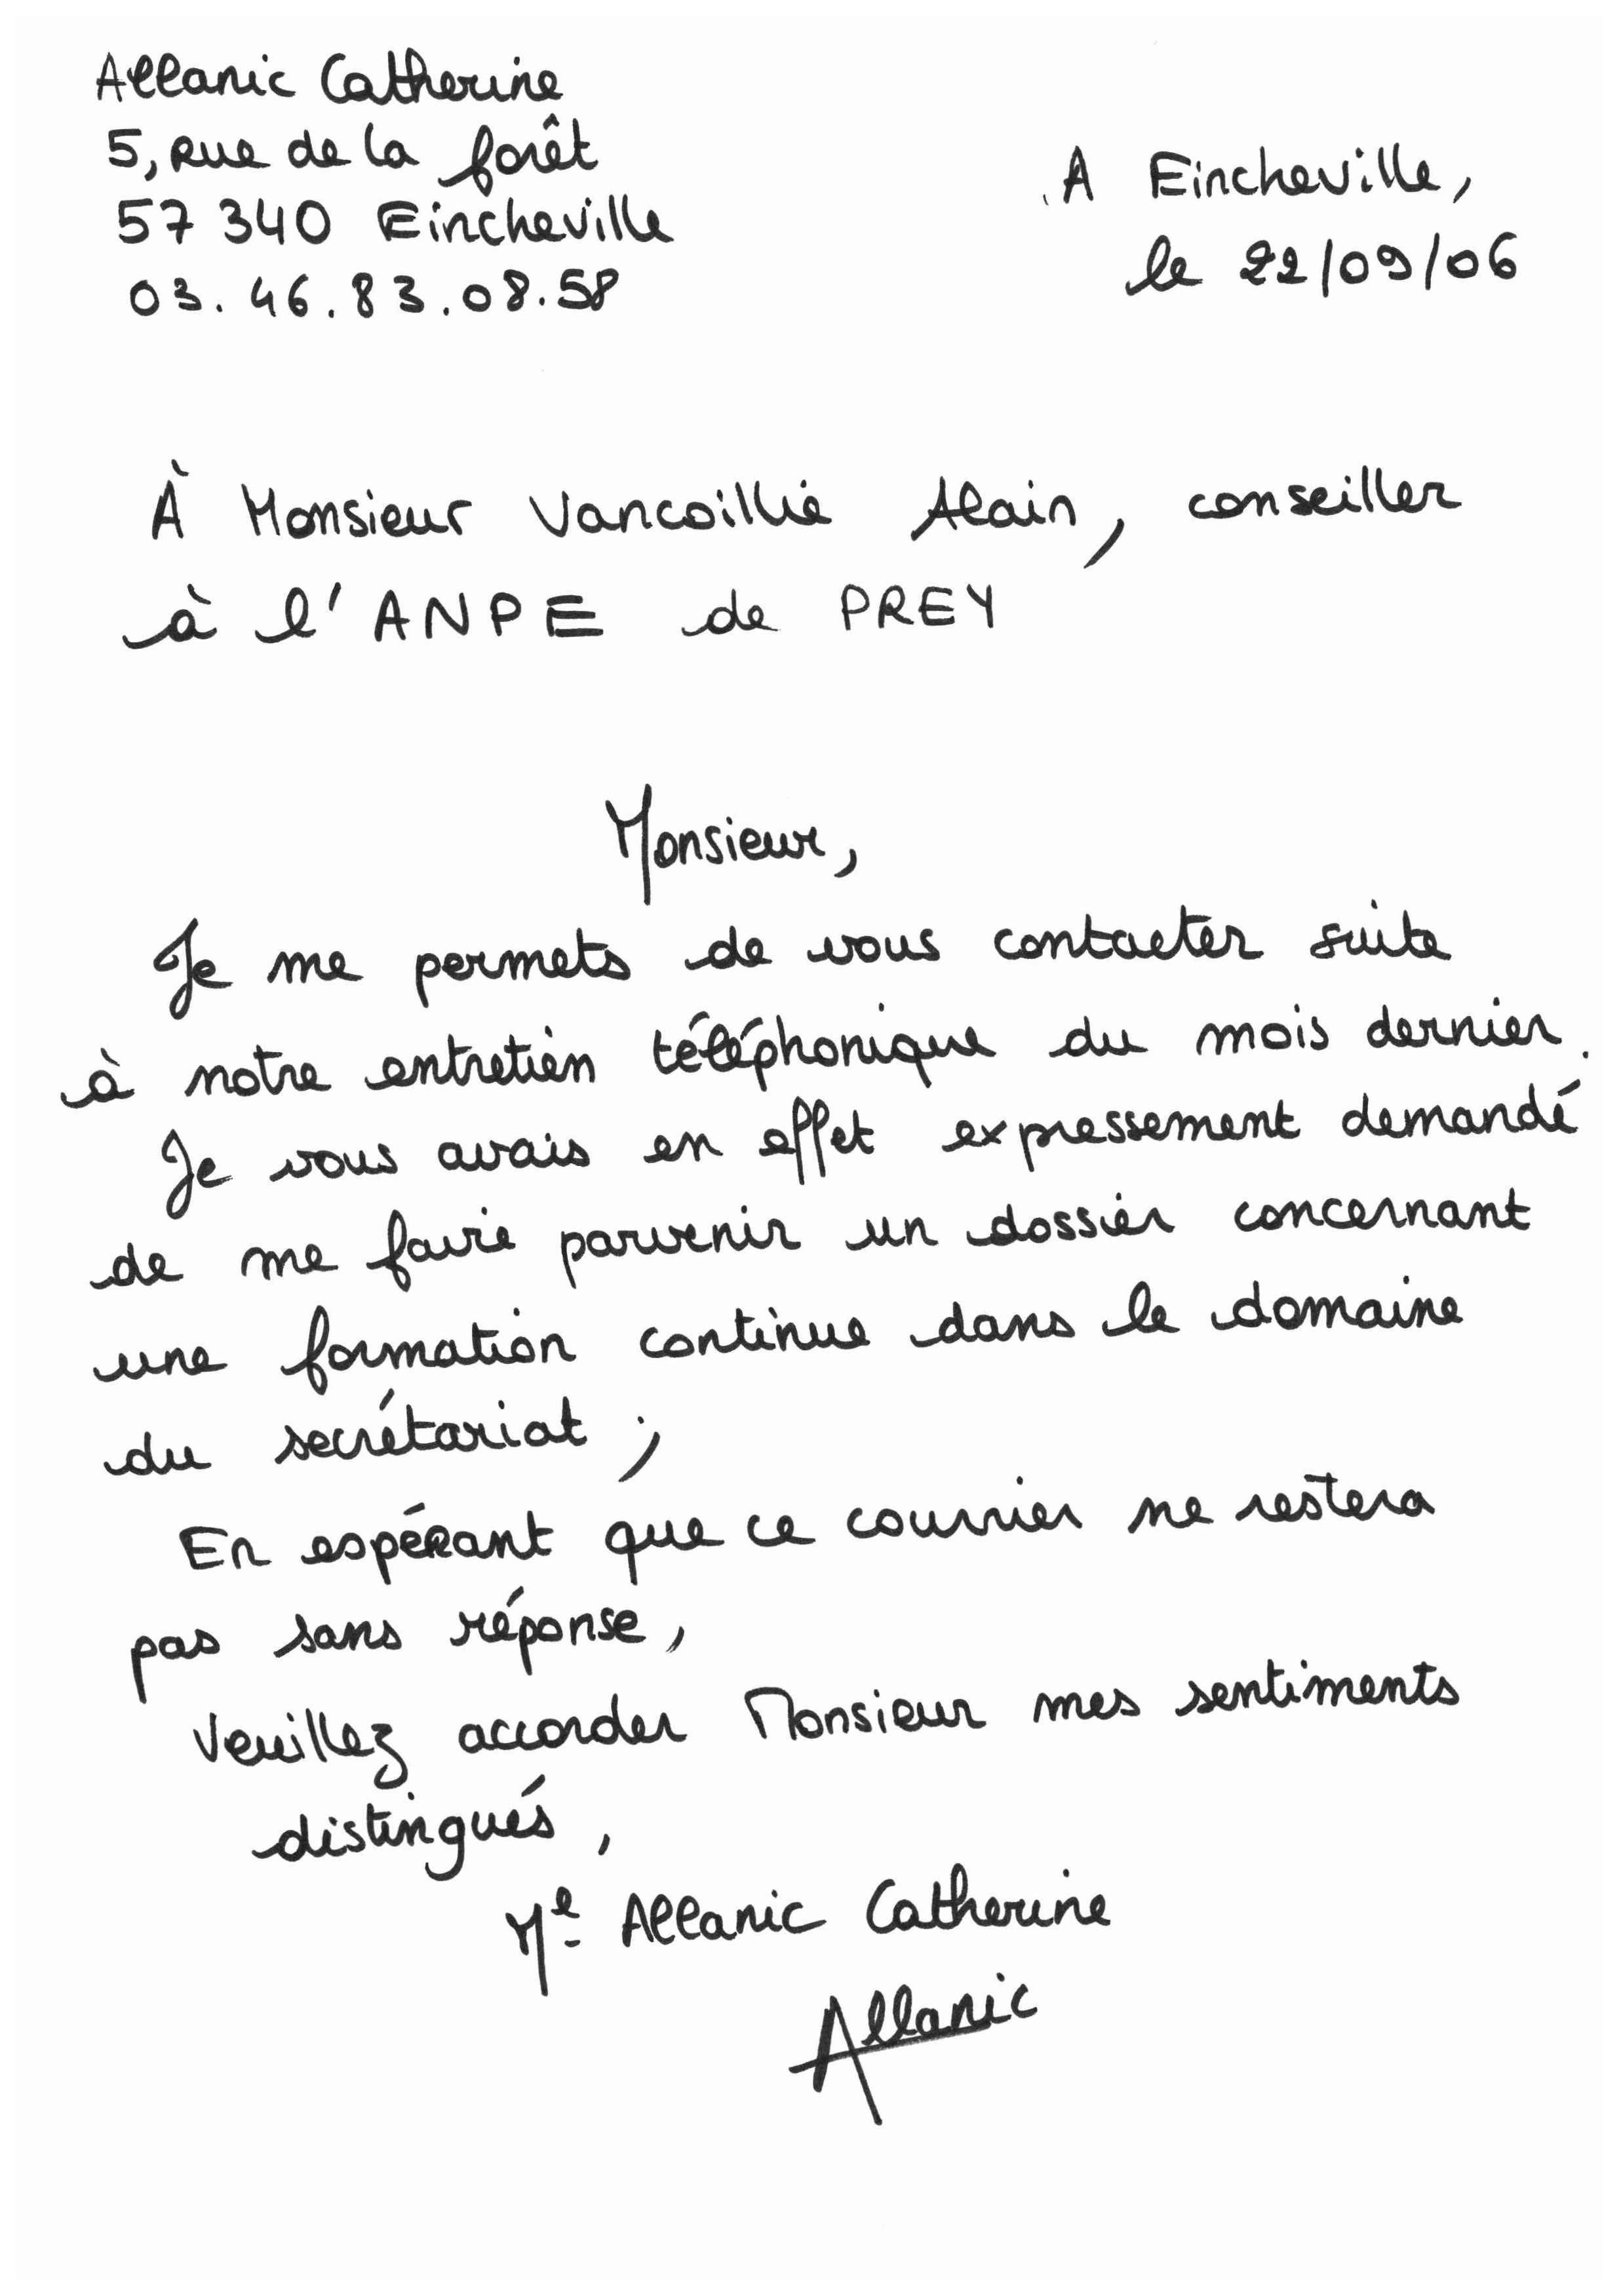 Allanic Catherine
5, Rue de la forêt
57 340 Eincheville
03.46.83.08.58
A Eincheville,
le 22/09/06
À Monsieur Vancoillie Alain, conseiller
à l'ANPE de PREY
Monsieur,
Je me permets de vous contacter suite
à notre entretien téléphonique du mois dernier.
Je vous avais en effet expressement demandé
de me faire parvenir un dossier concernant
une formation continue dans le domaine
du secrétariat ;
En espérant que ce courrier ne restera
pas sans réponse,
Veuillez accorder Monsieur mes sentiments
distingués,
Me Allanic Catherine
Allanic